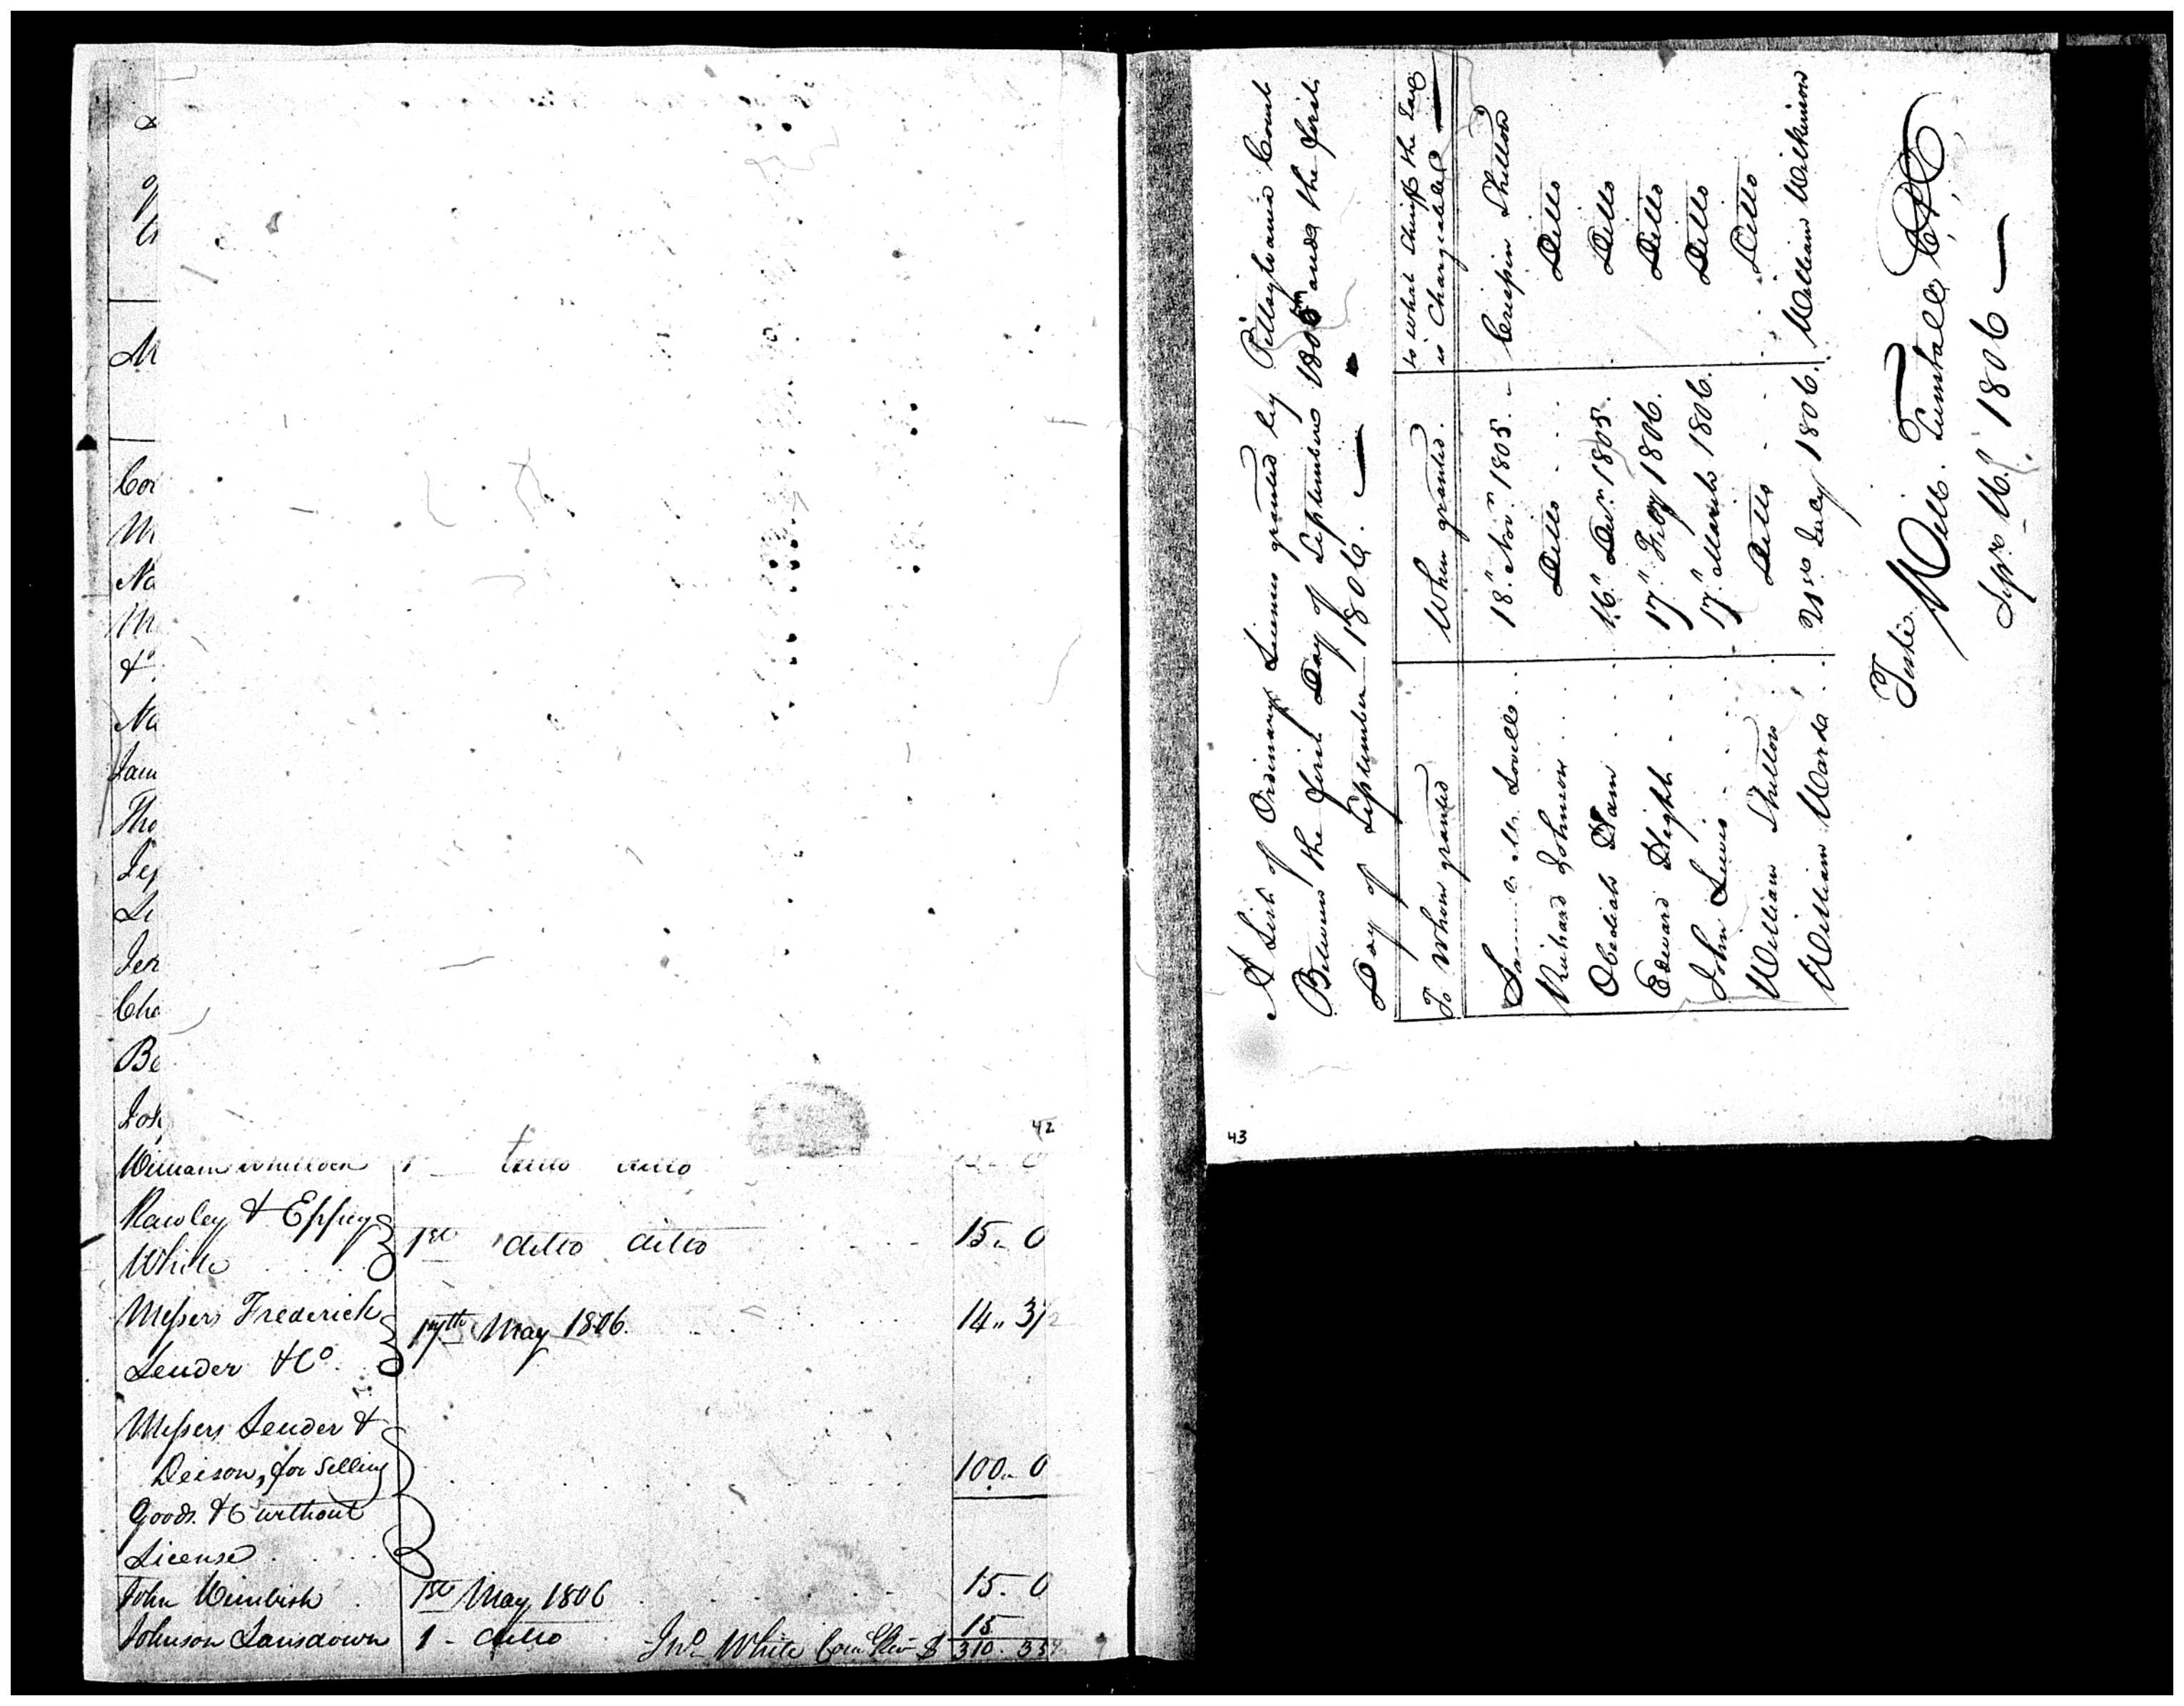 &
M
Coi
M
Na
M
& 
Na
Jam
Tho
Je
Le
Jer
Cha
Be
Jos
42
William Whitlock 1 ditto ditto
Rawley & Eppey
White 1st ditto ditto 15 " 0
Messrs Frederick
Leuder & Co. 17th May 1806. 14 " 3 1/2
Messrs Leuder &
Deison, for selling 100 " 0
Goods &c without
License
John Wimbish 1st May 1806 15 . 0
Johnson Lansdown 1 - ditto 15
Jno. White Com. Rev. $ 310. 35
A List of Ordinary License granted by Pittsylvania Court
Between the first Day of September 1805 and the first
Day of September 1806.
To Whom granted When granted. to what Sheriff the Tax is Chargeable
M. Lovell 18" Nov.r 1805. Crispin Shelton
Richard Johnson Ditto Ditto
Obediah Ham 16" Dec.r 1805. Ditto
Edward Hight 17" Feby 1806. Ditto
John Lewis 17" March 1806. Ditto
William Shelton Ditto Ditto
William Ward 21st July 1806. William Wilkinson
Teste.
Will. Tunstall C.P.C.
Sepr. 16." 1806
43